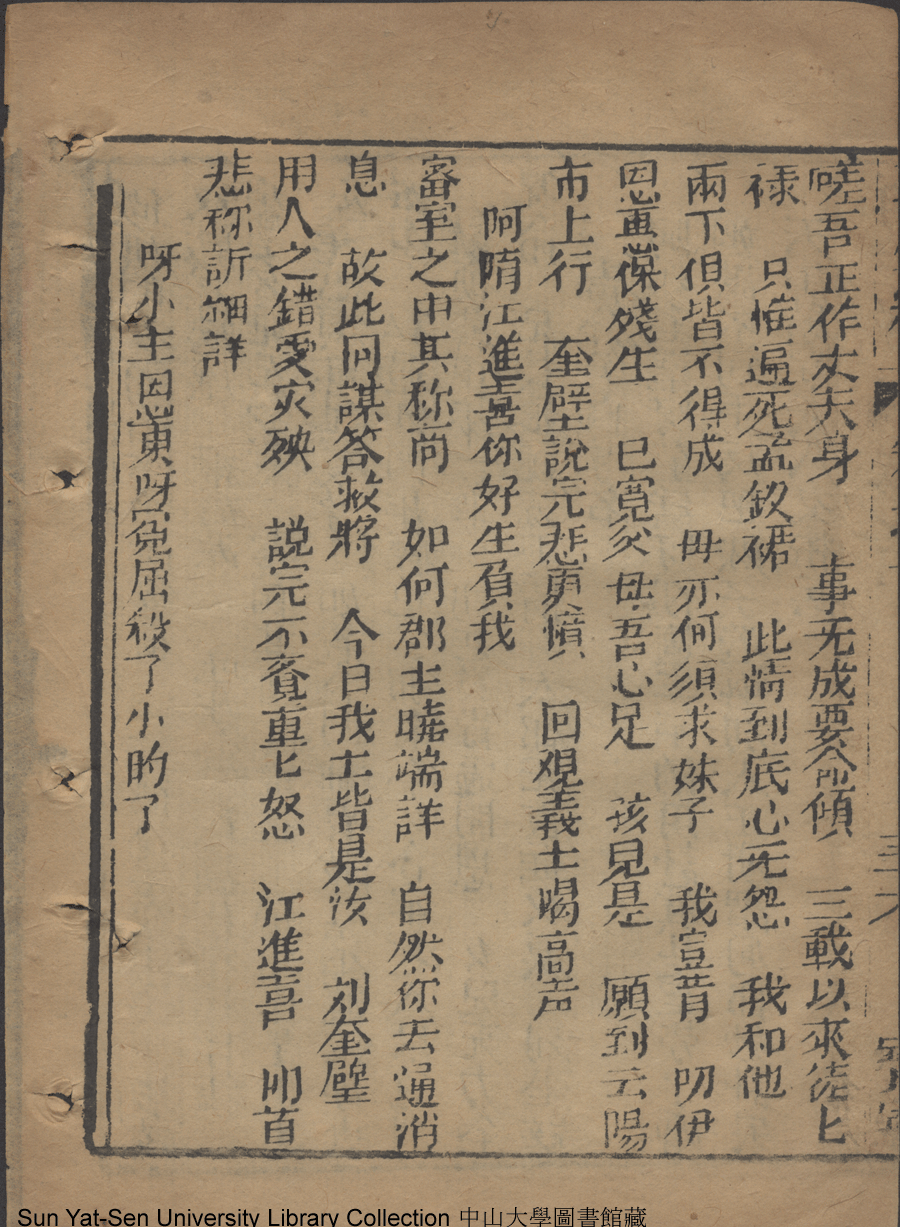 嗟吾正作丈夫身　事无成要命傾　三載以來徒匕
祿　只惟逼死孟釵裙　此情到底心无怨　我和他
兩下俱皆不得成　毋亦何須求妹子　我豈肯　叨伊
恩重葆殘生　已寬父母吾心足　孩兒是　願到云陽
市上行　奎壁說完悲更憤　回覌義士喝高声
阿隋江進喜你好生負我
密室之中其称尚　如何郡主曉端詳　自然你去通消
息　故此同謀答救將　今日我士皆是汝　刘奎壁
用人之錯受灾殃　説完不覔重匕怒　江進喜　叩首
悲称訴細詳
呀小主恩東呀冤屈殺了小的了
Sun Yat-Sen University Library Collection 中山大學圖書館藏